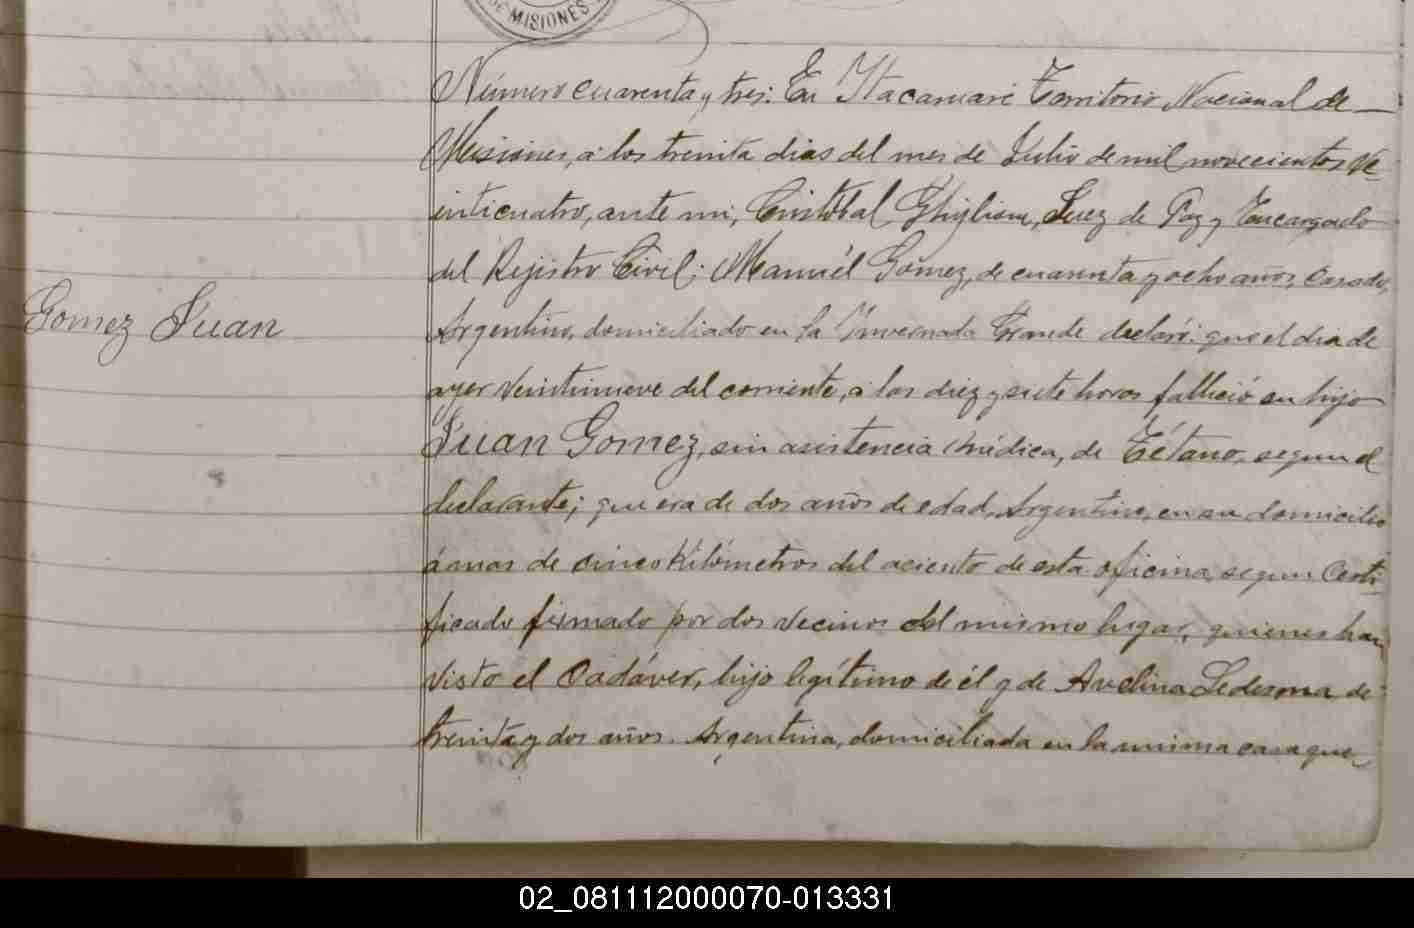 DE MISIONES
Número cuarenta y tres: En Itacaruaré Territorio Nacional de
Misiones, á los treinta dias del mes de Julio de mil novecientos ve-
inticuatro, ante mi, Cristóbal Ghiglione, Juez de Paz y Encargado
del Rejistro Civil; Manuél Gomez, de cuarenta y ocho años, casado,
Gomez Juan
Argentino, domiciliado en la Invernada Grande declaró: que el dia de
ayer veintinueve del corriente, á las diez y siete horas falleció su hijo
Juan Gomez, sin asistencia médica, de Tétano, segun el
declarante; que era de dos años de edad, Argentino, en su domicilio
á mas de cinco Kilómetros del aciento de esta oficina, segun Certi-
ficado firmado por dos vecinos del mismo lugar, quienes han
visto el Cadáver, hijo legítimo de él y de Avelina Ledesma, de
treinta y dos años. Argentina, domiciliada en la misma casa que
02_081112000070-013331